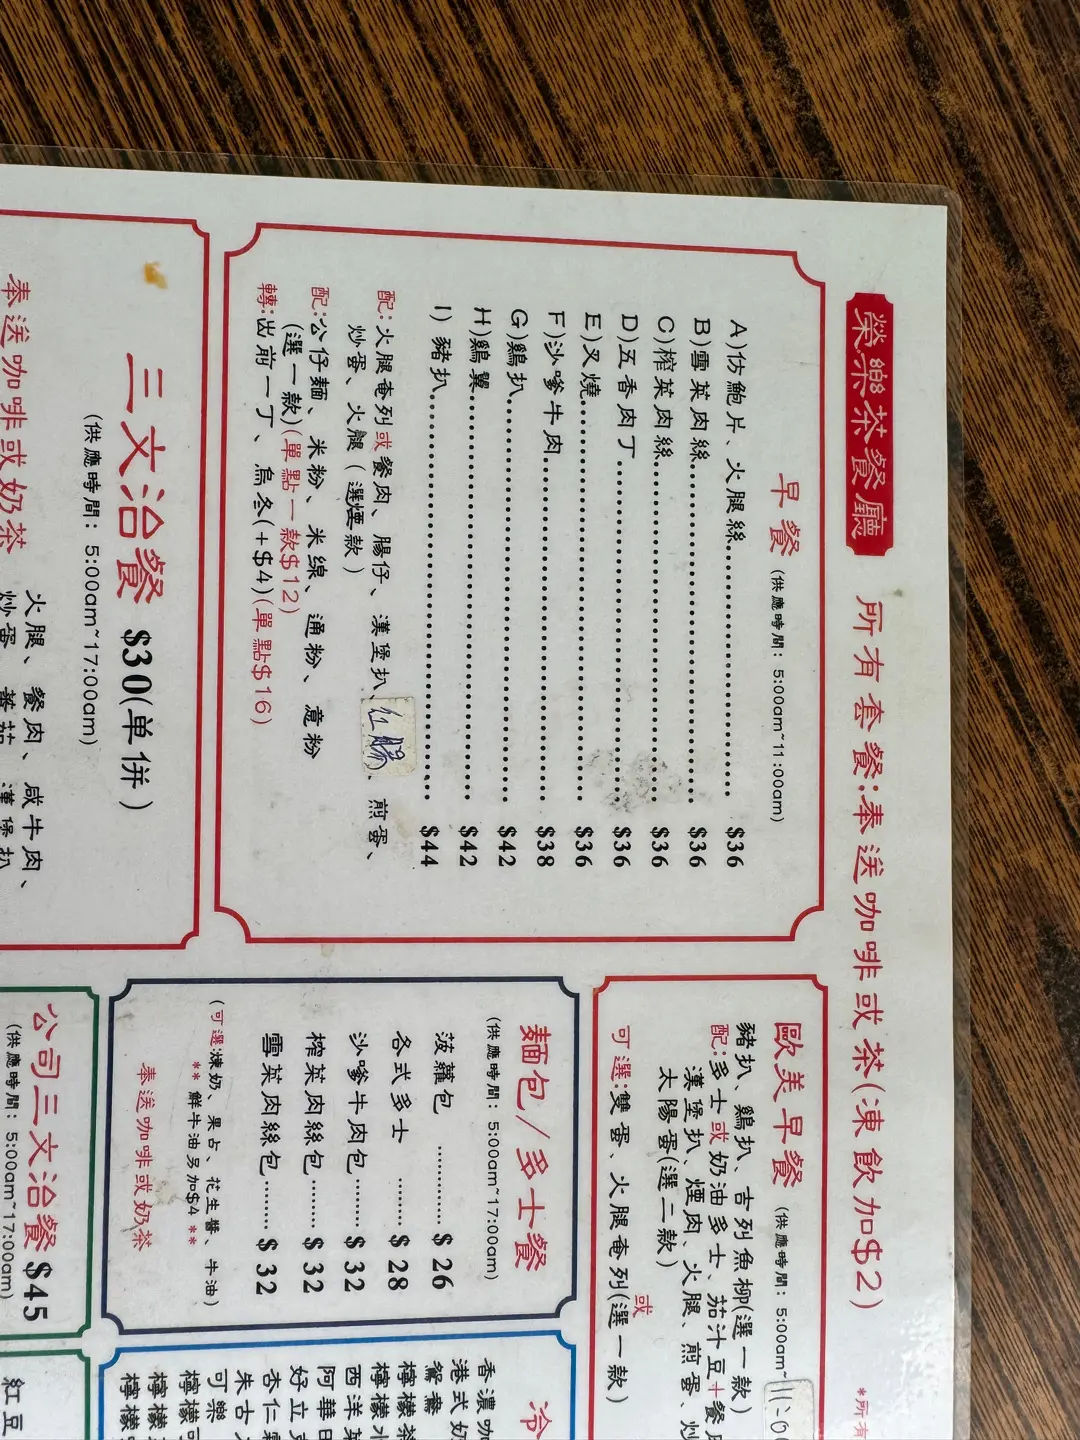 榮樂茶餐廳
所有套餐:奉送咖啡或茶(凍飲加$2)
*所有
早餐 (供應時間: 5:00am~11:00am)
A)仿鮑片、火腿絲 $36
B)雪菜肉絲 $36
C)榨菜肉絲 $36
D)五香肉丁 $36
E)叉燒 $36
F)沙嗲牛肉 $38
G)鷄扒 $42
H)鷄翼 $42
I) 豬扒 $44
配:火腿奄列或餐肉、腸仔、漢堡扒、红腸、煎蛋、
炒蛋、火腿(選煙款)
配:公仔麵、米粉、米線、通粉、意粉
(選一款)(單點一款$12)
轉:出前一丁、烏冬(+$4)(單點$16)
歐美早餐 (供應時間: 5:00am~11:00
豬扒、鷄扒、吉列魚柳(選一款)
配:多士或奶油多士、茄汁豆+餐
漢堡扒、煙肉、火腿、煎蛋、炒
太陽蛋(選二款)
或
可選:雙蛋、火腿奄列(選一款)
麵包/多士餐
(供應時間: 5:00am~17:00am)
菠蘿包 $ 26
各式多士 $ 28
沙嗲牛肉包 $ 32
榨菜肉絲包 $ 32
雪菜肉絲包 $ 32
(可選:煉奶、果占、花生醬、牛油)
** 鮮牛油另加$4 **
奉送咖啡或奶茶
三文治餐 $30(单併)
(供應時間: 5:00am~17:00am)
火腿、餐肉、咸牛肉、
炒蛋、蕃茄、漢堡扒
奉送咖啡或奶茶
公司三文治餐 $45
(供應時間: 5:00am~17:00am)
紅豆
冷
香濃咖
港式奶
鴛鴦
檸檬茶
檸檬水
西洋菜
阿華田
好立克
杏仁
朱古
可樂
檸檬可
檸檬
檸檬